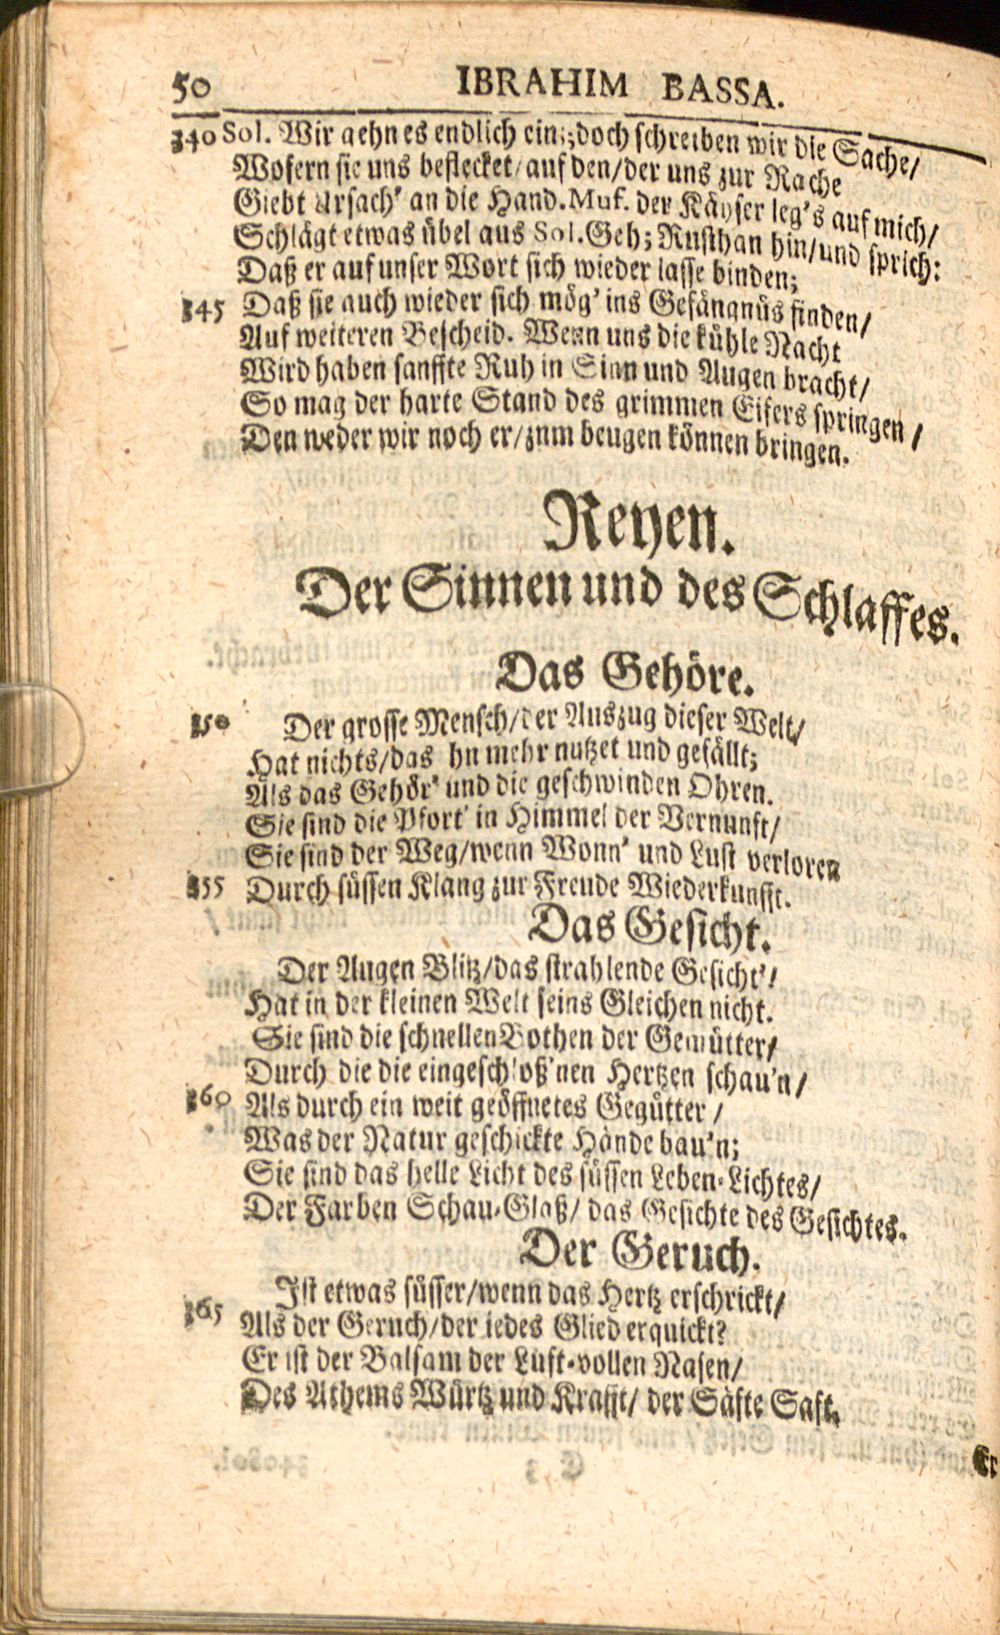 50 IBRAHIM BASSA.
340 Sol. Wir gehn es endlich ein; doch schreiben wir die Sache/
Wofern sie uns beflecket/ auf den/ der uns zur Rache
Giebt Ursach' an die Hand. Muf. der Käyser leg's auf mich/
Schlägt etwas übel aus Sol. Geh; Rusthan hin/ und sprich:
Daß er auf unser Wort sich wieder lasse binden;
345 Daß sie auch wieder sich mög' ins Gefängnüs finden/
Auf weiteren Bescheid. Wenn uns die kühle Nacht
Wird haben sanffte Ruh in Sinn und Augen bracht/
So mag der harte Stand des grimmen Eifers springen/
Den weder wir noch er/ znm beugen können bringen.
Reyen.
Der Sinnen und des Schlaffes.
Das Gehöre.
350 Der grosse Mensch/ der Auszug dieser Welt/
Hat nichts/ das hn mehr nutzet und gefällt;
Als das Gehör' und die geschwinden Ohren.
Sie sind die Pfort' in Himmel der Vernunft/
Sie sind der Weg/ wenn Wonn' und Lust verloren
355 Durch süssen Klang zur Freude Wiederkunfft.
Das Gesicht.
Der Augen Blitz/ das strahlende Gesicht'/
Hat in der kleinen Welt seins Gleichen nicht.
Sie sind die schnellen Bothen der Gemütter/
Durch die die eingeschloß'nen Hertzen schau'n/
360 Als durch ein weit geöffnetes Gegütter/
Was der Natur geschickte Hände bau'n;
Sie sind das helle Licht des süssen Leben-Lichtes/
Der Farben Schau-Glaß/ das Gesichte des Gesichtes.
Der Geruch.
Ist etwas süsser/ wenn das Hertz erschrickt/
365 Als der Geruch/ der iedes Glied erquickt?
Er ist der Balsam der Lust-vollen Nasen/
Des Athems Würtz und Krafft/ der Säfte Saft.
Er